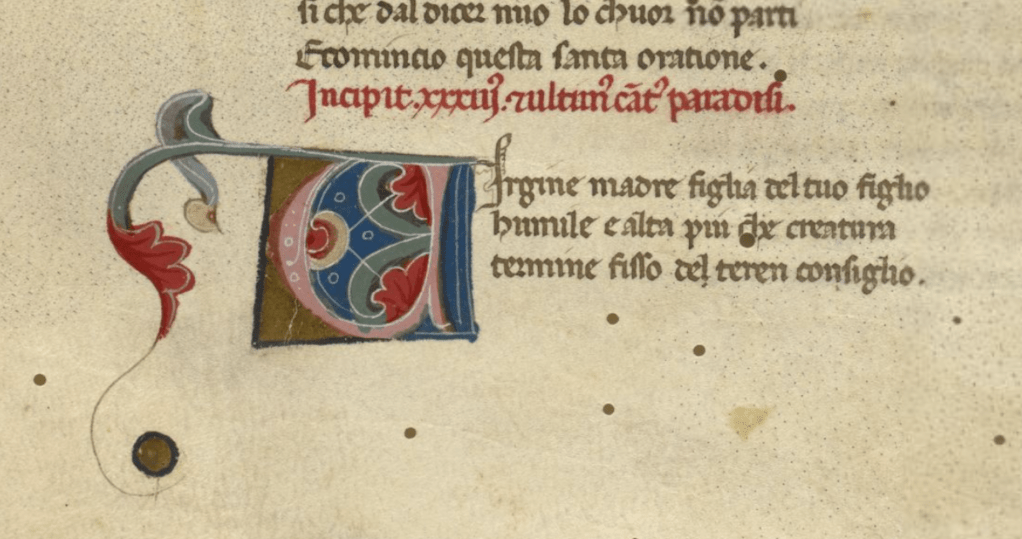 si che dal dicer mio lo chuor nō parti
E comincio questa santa oratione.
Incipit .xxxiij. ⁊ ultim' cāt' paradisi.
Virgine madre figlia del tuo figlio
humile e alta piu che creatura
termine fisso del teren consiglio.